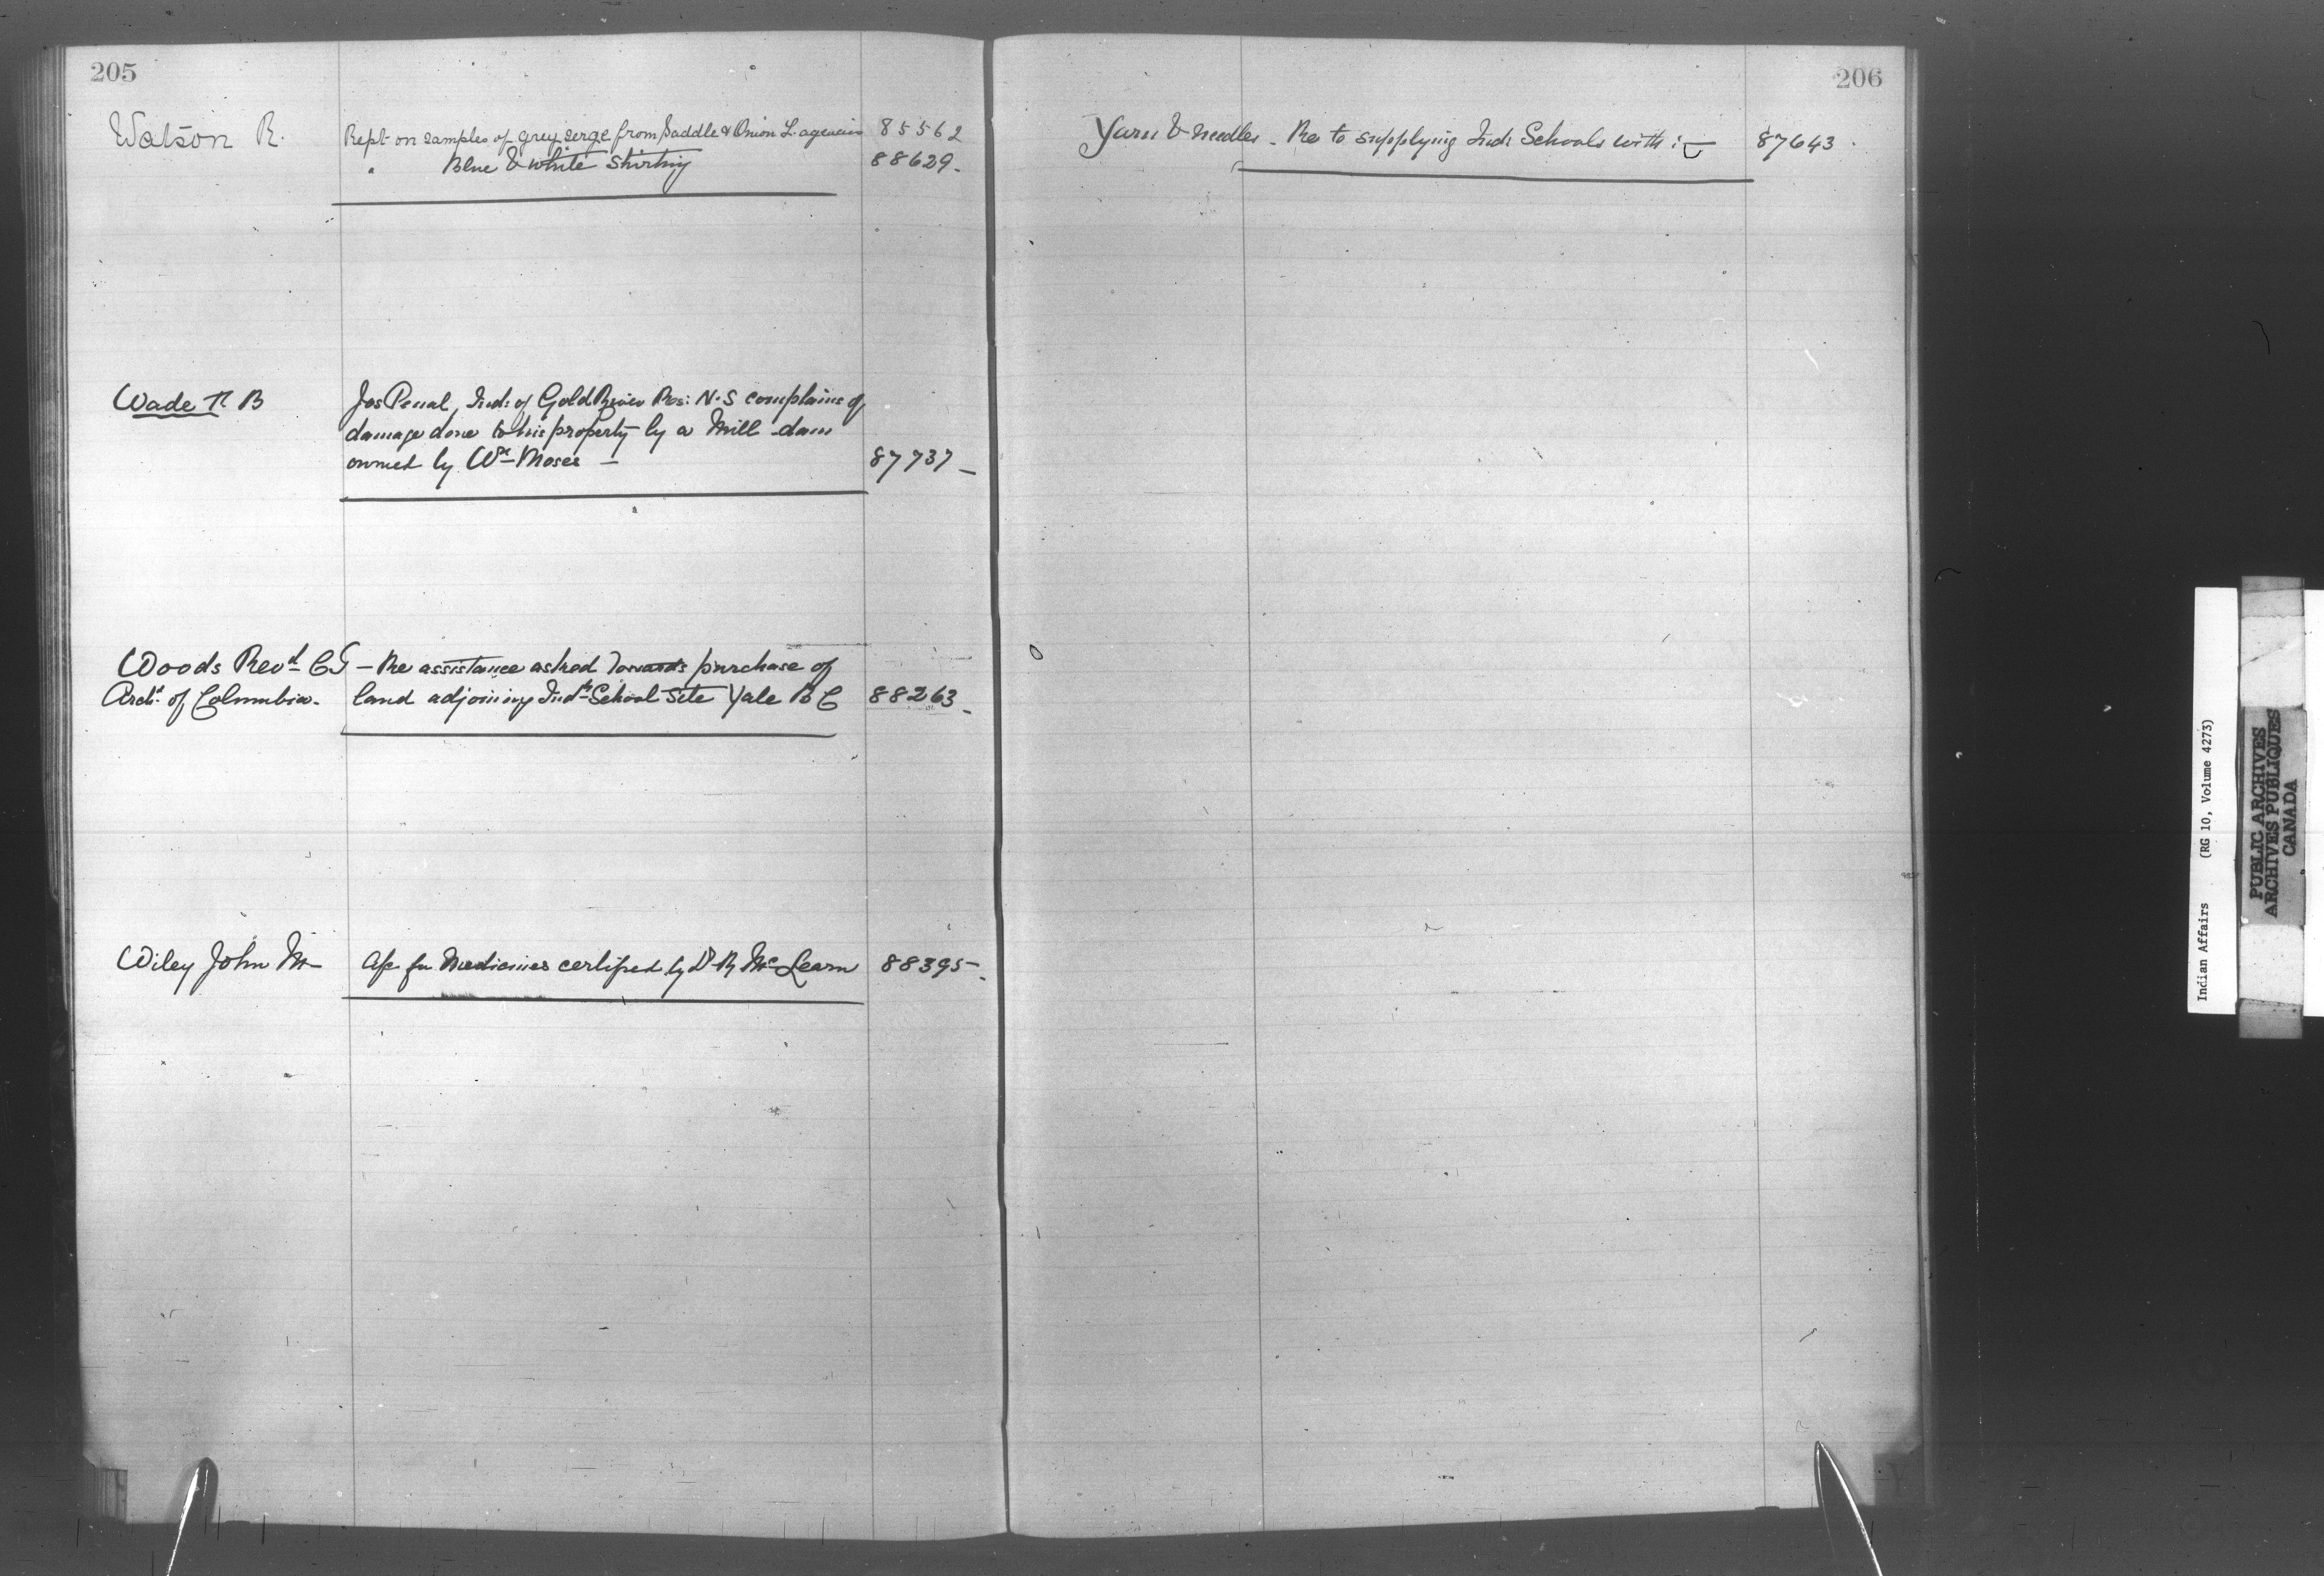 205
Watson R. Rept on samples of grey serge from Saddle & Onion L. agencies 85562
" Blue & white Shirting 88629.
Wade R B Jos Penal, Ind: of Gold River Res: N.S complains of
damage done to his property by a Mill dam
owned by Wm Moses — 87737 —
Woods Revd C G — Re assistance asked towards purchase of
Archd of Columbia. land adjoining Indn School site Yale B C 88263 —
Wiley John M a/c for Medicines certified by Dr R McLearn 88395 —
206
Yarn & needles. Re to supplying Ind: Schools with :— 87643.
Indian Affairs (RG 10, Volume 4273)
PUBLIC ARCHIVES
ARCHIVES PUBLIQUES
CANADA